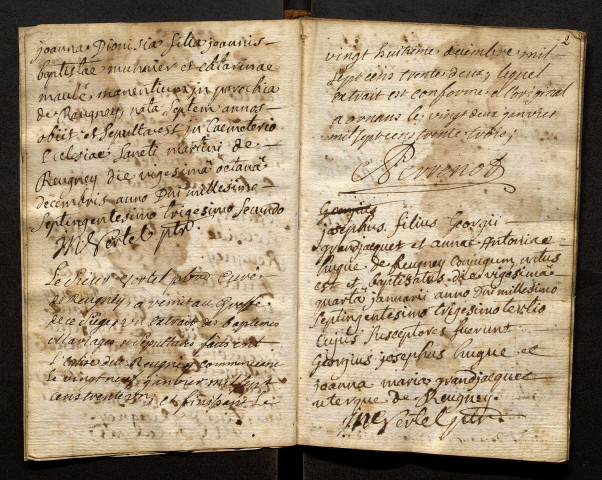 joanna Dionisia filia joannis
baptistae muhnier et catarinae
maubé manentium in parochia
de Reugney nata septem annos
obiit et sepulta est in Caemeterio
Eclesiae Sancti martini de
Reugney die vigesima octava
decembris anno Dni millesimo
septingentesimo trigesimo secundo
Vertel ptr
Le sieur Vertel ptre Curé
de Reugney a remit au greffe
de ce siege un extrait des baptemes
Mariages et sepultures
de Reugney commencant
le vingt neuf janvier mil sept
cens trente deux et finissant Le
2
vingt huitieme decembre mil
sept cens trente deux, lequel
extrait est conforme a l'original
a ornans le vingt deux janvier
mil sept cens trente trois
Perronot
Georgius
josephus filius Georgii
grandjacquet et annae Antoniae
hugue de Reugney conjugum natus
est et baptisatus die vigesima
quarta januarii anno Dni millesimo
septingentesimo trigesimo tertio
cujus susceptores fuerunt
Georgius josephus hugue et
joanna maria grandjacquet
uterque de Reugney
Vertel ptr